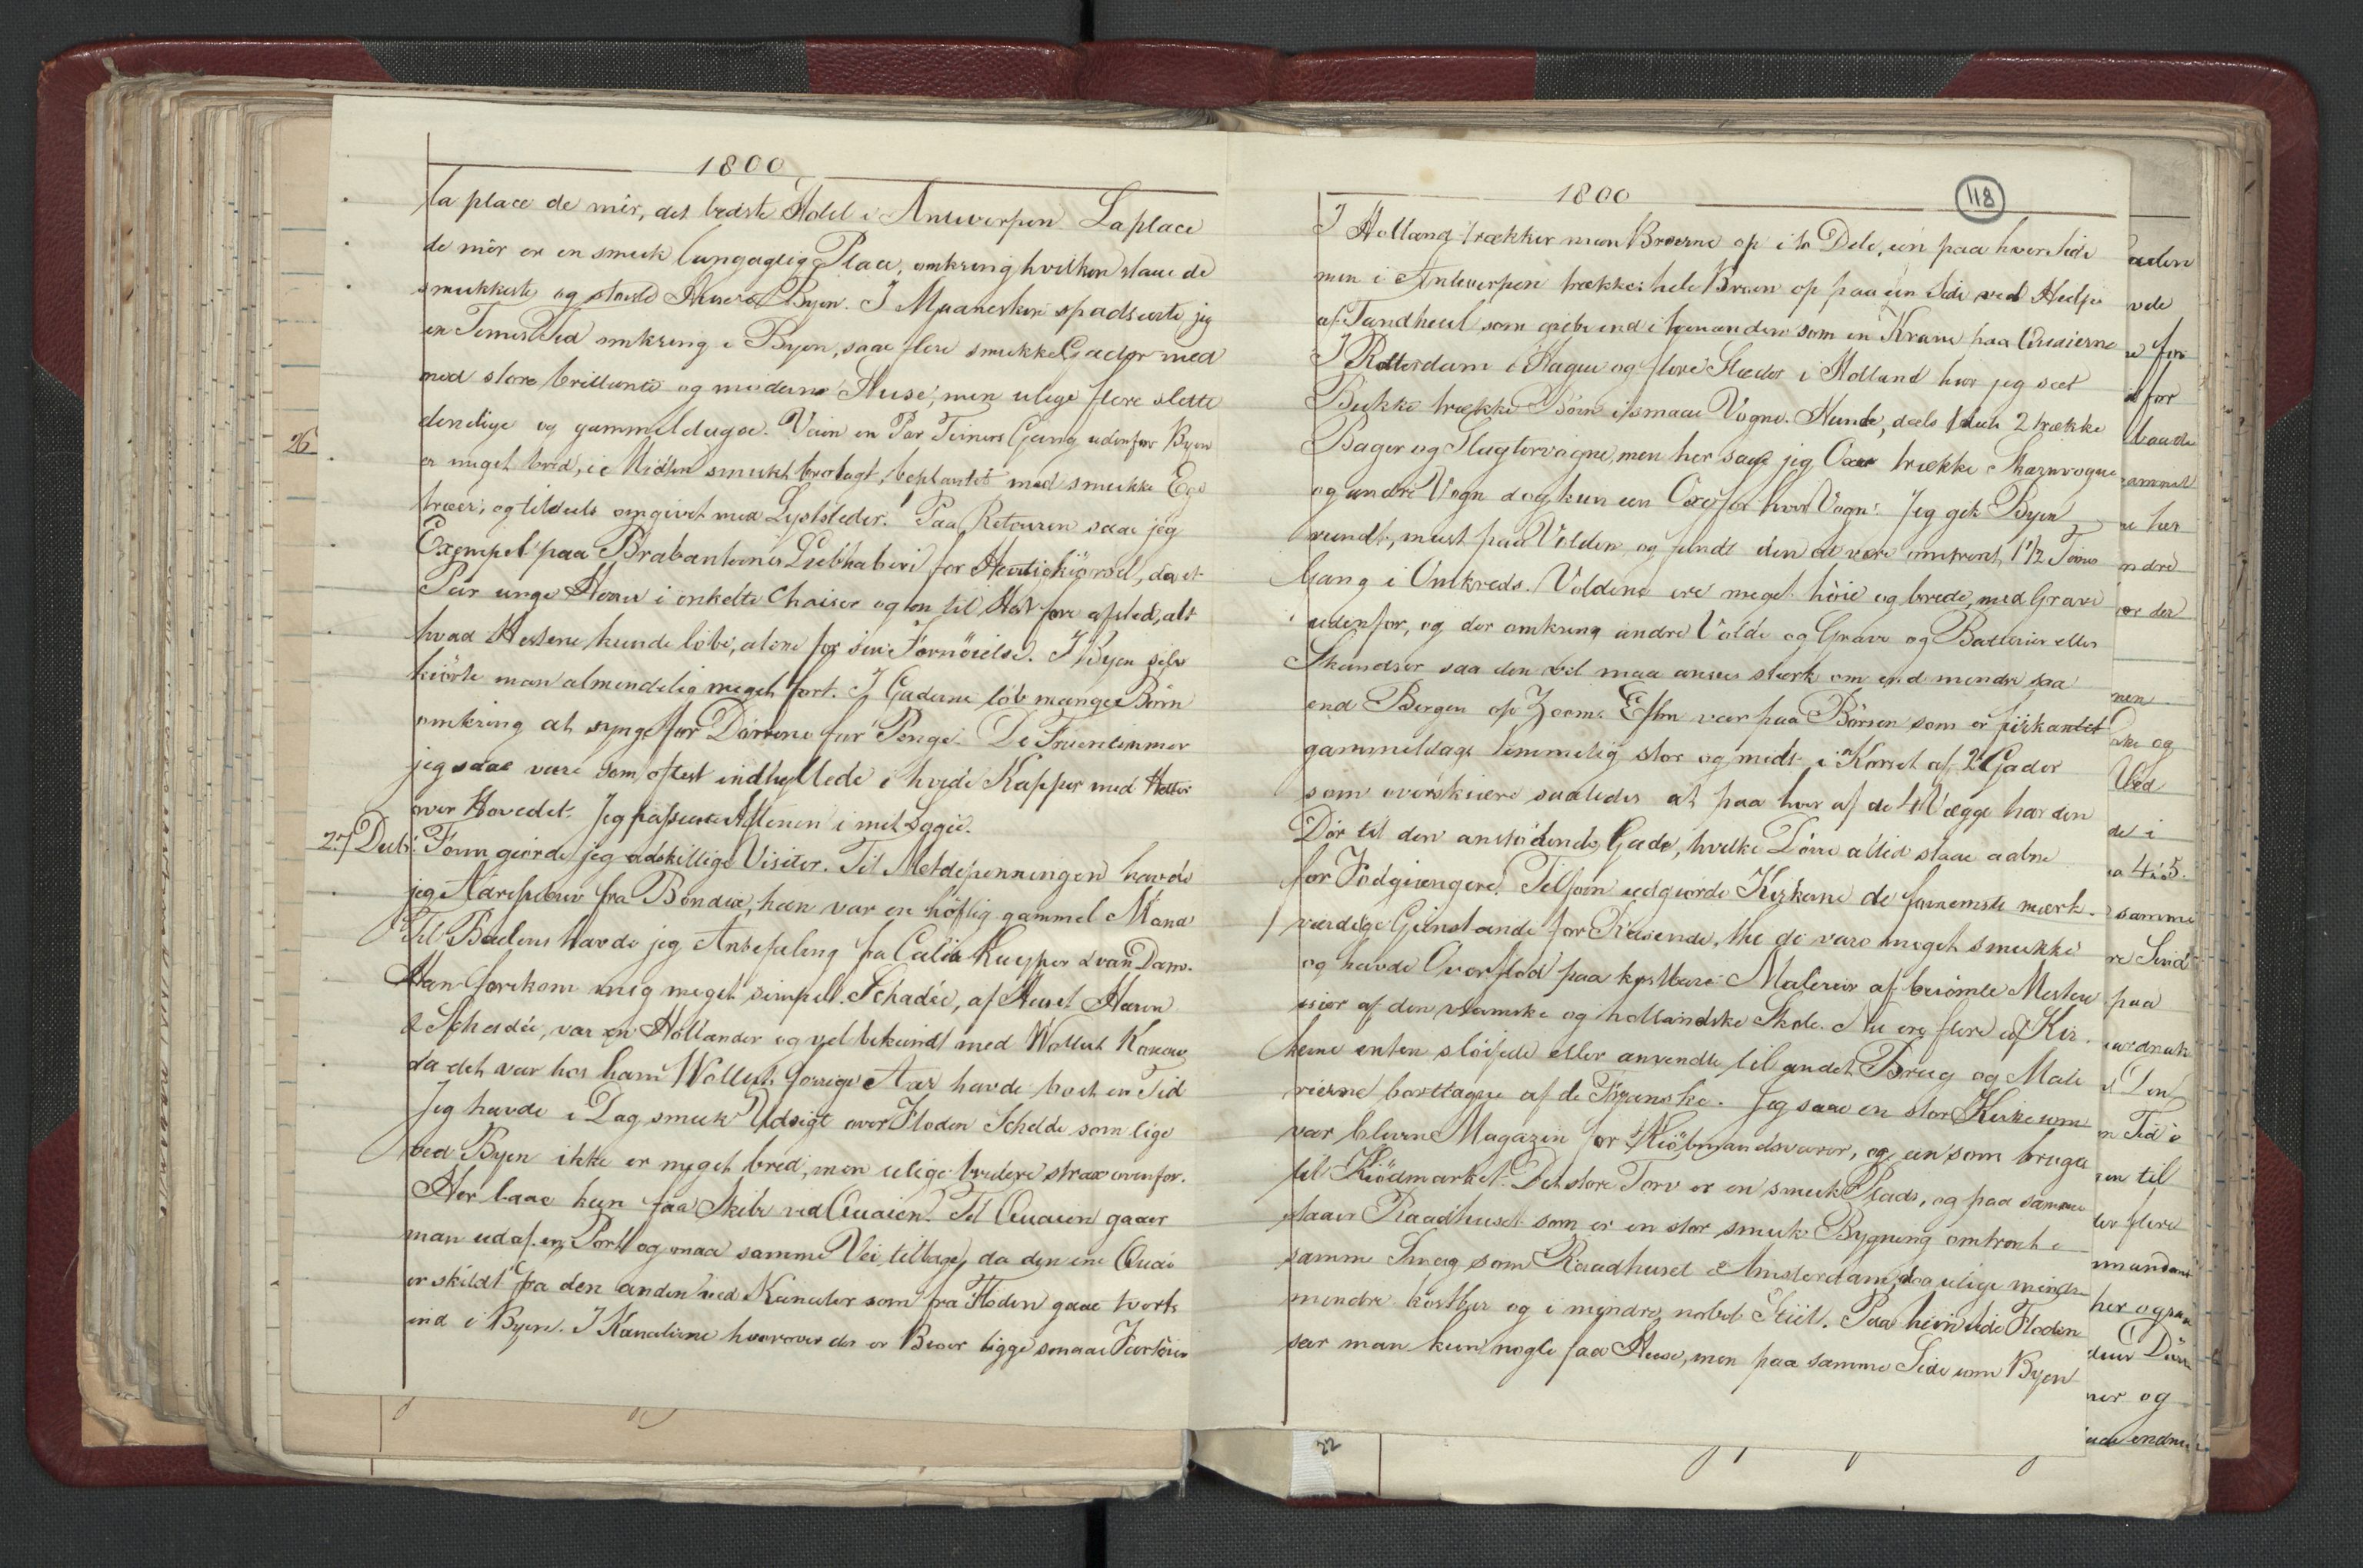 1800
la place de mèr, det bedste Hotel i Antwerpen. Laplace
de mèr er en smuk langagtig Place, omkring hvilken staae de
smukkeste og største Huse i Byen. I Maaneskin spadserte jeg
en Times Tid omkring i Byen, saae flere smukke Gader med
med store brillante og moderne Huse, men ulige flere slette
elendige og gammeldagse. Veien en Par Timers Gang udenfor Byen
26
er meget bred, i Midten smukt brolagt, beplantet med smukke Ege
træer, og tildeels omgivet med Lyststeder. Paa Retouren saae jeg
Exempel paa Brabanternes Liebhaberi for Hurtigkiørsel, da et
Par unge Herrer i enkelte Chaiser og en til Hest fore afsted, alt
hvad Hestene kunde løbe, alene for sin Fornøielse. I Byen selv
kiørte man almindelig meget fort. I Gaderne løb mange Børn
omkring at synge for Dørrene for Penge. De Fruentimmer
jeg saae vare som oftest indhyllede i hvide Kapper med Hetter
over Hovedet. Jeg passerte Aftenen i mit Logie.
27 Decbr: Form giorde jeg adskillige Visiter. Til Metdepenningen havde
jeg Adressebrev fra Bondue, han var en høflig gammel Mand
Til Baelens havde jeg Anbefaling fra Calix Kuyper & van Dam.
Han forekom mig meget simpel. Schadée, af Huset Haren
& Schadée, var en Hollænder og vel bekiendt med Wollert Konow,
da det var hos ham Wollert forrige Aar havde boet en Tid
Jeg havde i Dag smuk Udsigt over Floden Schelde som lige
ved Byen ikke er meget bred, men ulige bredere strax ovenfor.
Her laae kun faa Skibe ved Quaien. Til Quaien gaaer
man ud af en Port og maa samme Vei tilbage, da den ene Quai
er skildt fra den anden ved Kanaler som fra Floden gaae tverts
ind i Byen. I Kanalerne hvorover der er Broer ligge smaae Fartøier
1800
118
I Holland trækker man Broerne op i to Dele, een paa hver Side
men i Antwerpen trækkes hele Broen op paa een Side ved Hielp
af Tandheul som gribe ind i hverandre som en Kran paa Quaierne
I Rotterdam i Hague og flere Stæder i Holland har jeg seet
Bukke trække Børn i smaae Vogne. Hunde, deels 1 deels 2 trække
Bager og Slagtervogne, men her saae jeg Oxer trække Skarnvogne
og andre Vogn dog kun een Oxe for hver Vogn. Jeg gik Byen
rundt, mest paa Volden og fandt den at være omtrent 1 1/2 Times
Gang i Omkreds. Voldene ere meget høie og brede, med Grave
udenfor, og der omkring andre Volde og Grave og Batterier eller
Skandser saa den vel maa ansees stærk om end mindre saa
end Bergen op Zoom. Eftm var paa Børsen som er firkantet
gammeldags temmelig stor og midt i Korset af 2 Gader
som overskiære saaledes at paa hver af de 4 Vægge har den
Dør til den anstødende Gade, hvilke Dørre altid staae aabne
for Fodgiængere. Tilforn udgiorde Kirkerne de fornemste mærk-
værdige Gienstande for Reisende, thi de vare meget smukke
og havde Overflod paa kostbare Malerier af berømte Mestere
især af den vlamske og hollandske Skole. Nu ere flere af Kir-
kerne enten sløifede eller anvendte til andet Brug og Male
rierne borttagne af de Franske. Jeg saae en stor Kirke som
var bleven Magazin for Kiøbmandsvarer, og een som bruges
til Kiødmarket. Det store Torv er en smuk Plads, og paa samme
staaer Raadhuset som er en stor smuk Bygning omtrent i
samme Smag som Raadhuset i Amsterdam, dog ulige mindre
mindre kostbar og i mindre nobel Stiil. Paa hiin side Floden
seer man kun nogle faa Huse, men paa samme Side som Byen
22